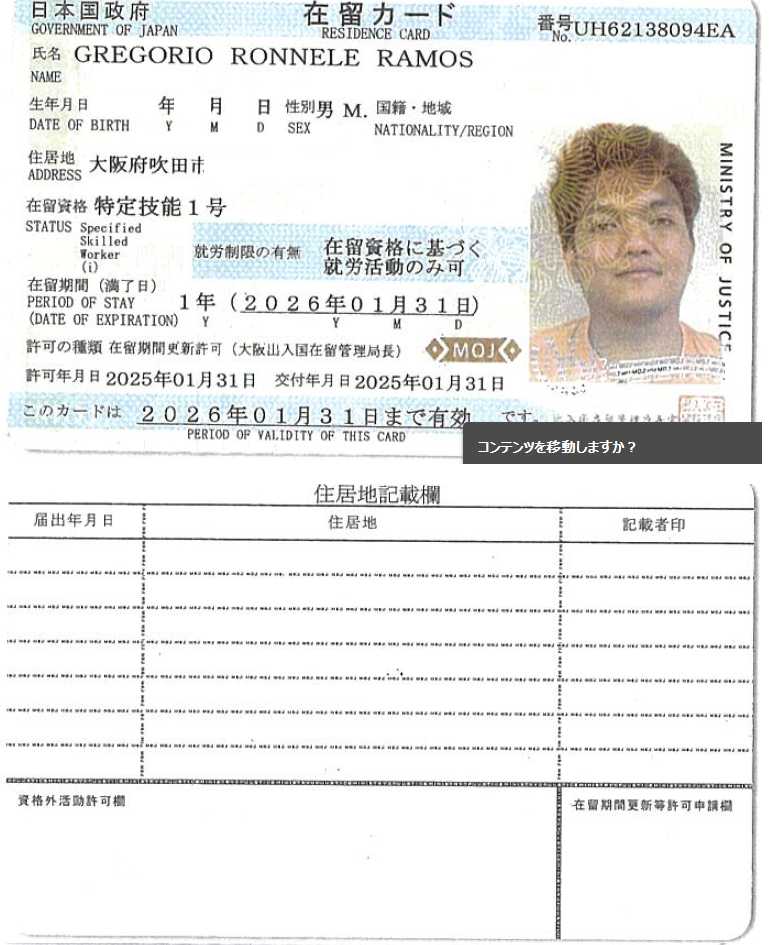 日本国政府
GOVERNMENT OF JAPAN
在留カード
RESIDENCE CARD
番号
No. UH62138094EA
氏名 GREGORIO RONNELE RAMOS
NAME
生年月日 年 月 日 性別 男 M. 国籍・地域
DATE OF BIRTH Y M D SEX NATIONALITY/REGION
住居地 大阪府吹田市
ADDRESS
在留資格 特定技能1号
STATUS Specified
Skilled
Worker
(i)
就労制限の有無 在留資格に基づく
就労活動のみ可
在留期間(満了日)
PERIOD OF STAY 1年(2026年01月31日)
(DATE OF EXPIRATION) Y Y M D
許可の種類 在留期間更新許可(大阪出入国在留管理局長)
MOJ
許可年月日 2025年01月31日 交付年月日 2025年01月31日
このカードは 2026年01月31日まで有効 です。
PERIOD OF VALIDITY OF THIS CARD
MINISTRY OF JUSTICE
コンテンツを移動しますか?
住居地記載欄
届出年月日 住居地 記載者印
資格外活動許可欄 在留期間更新等許可申請欄